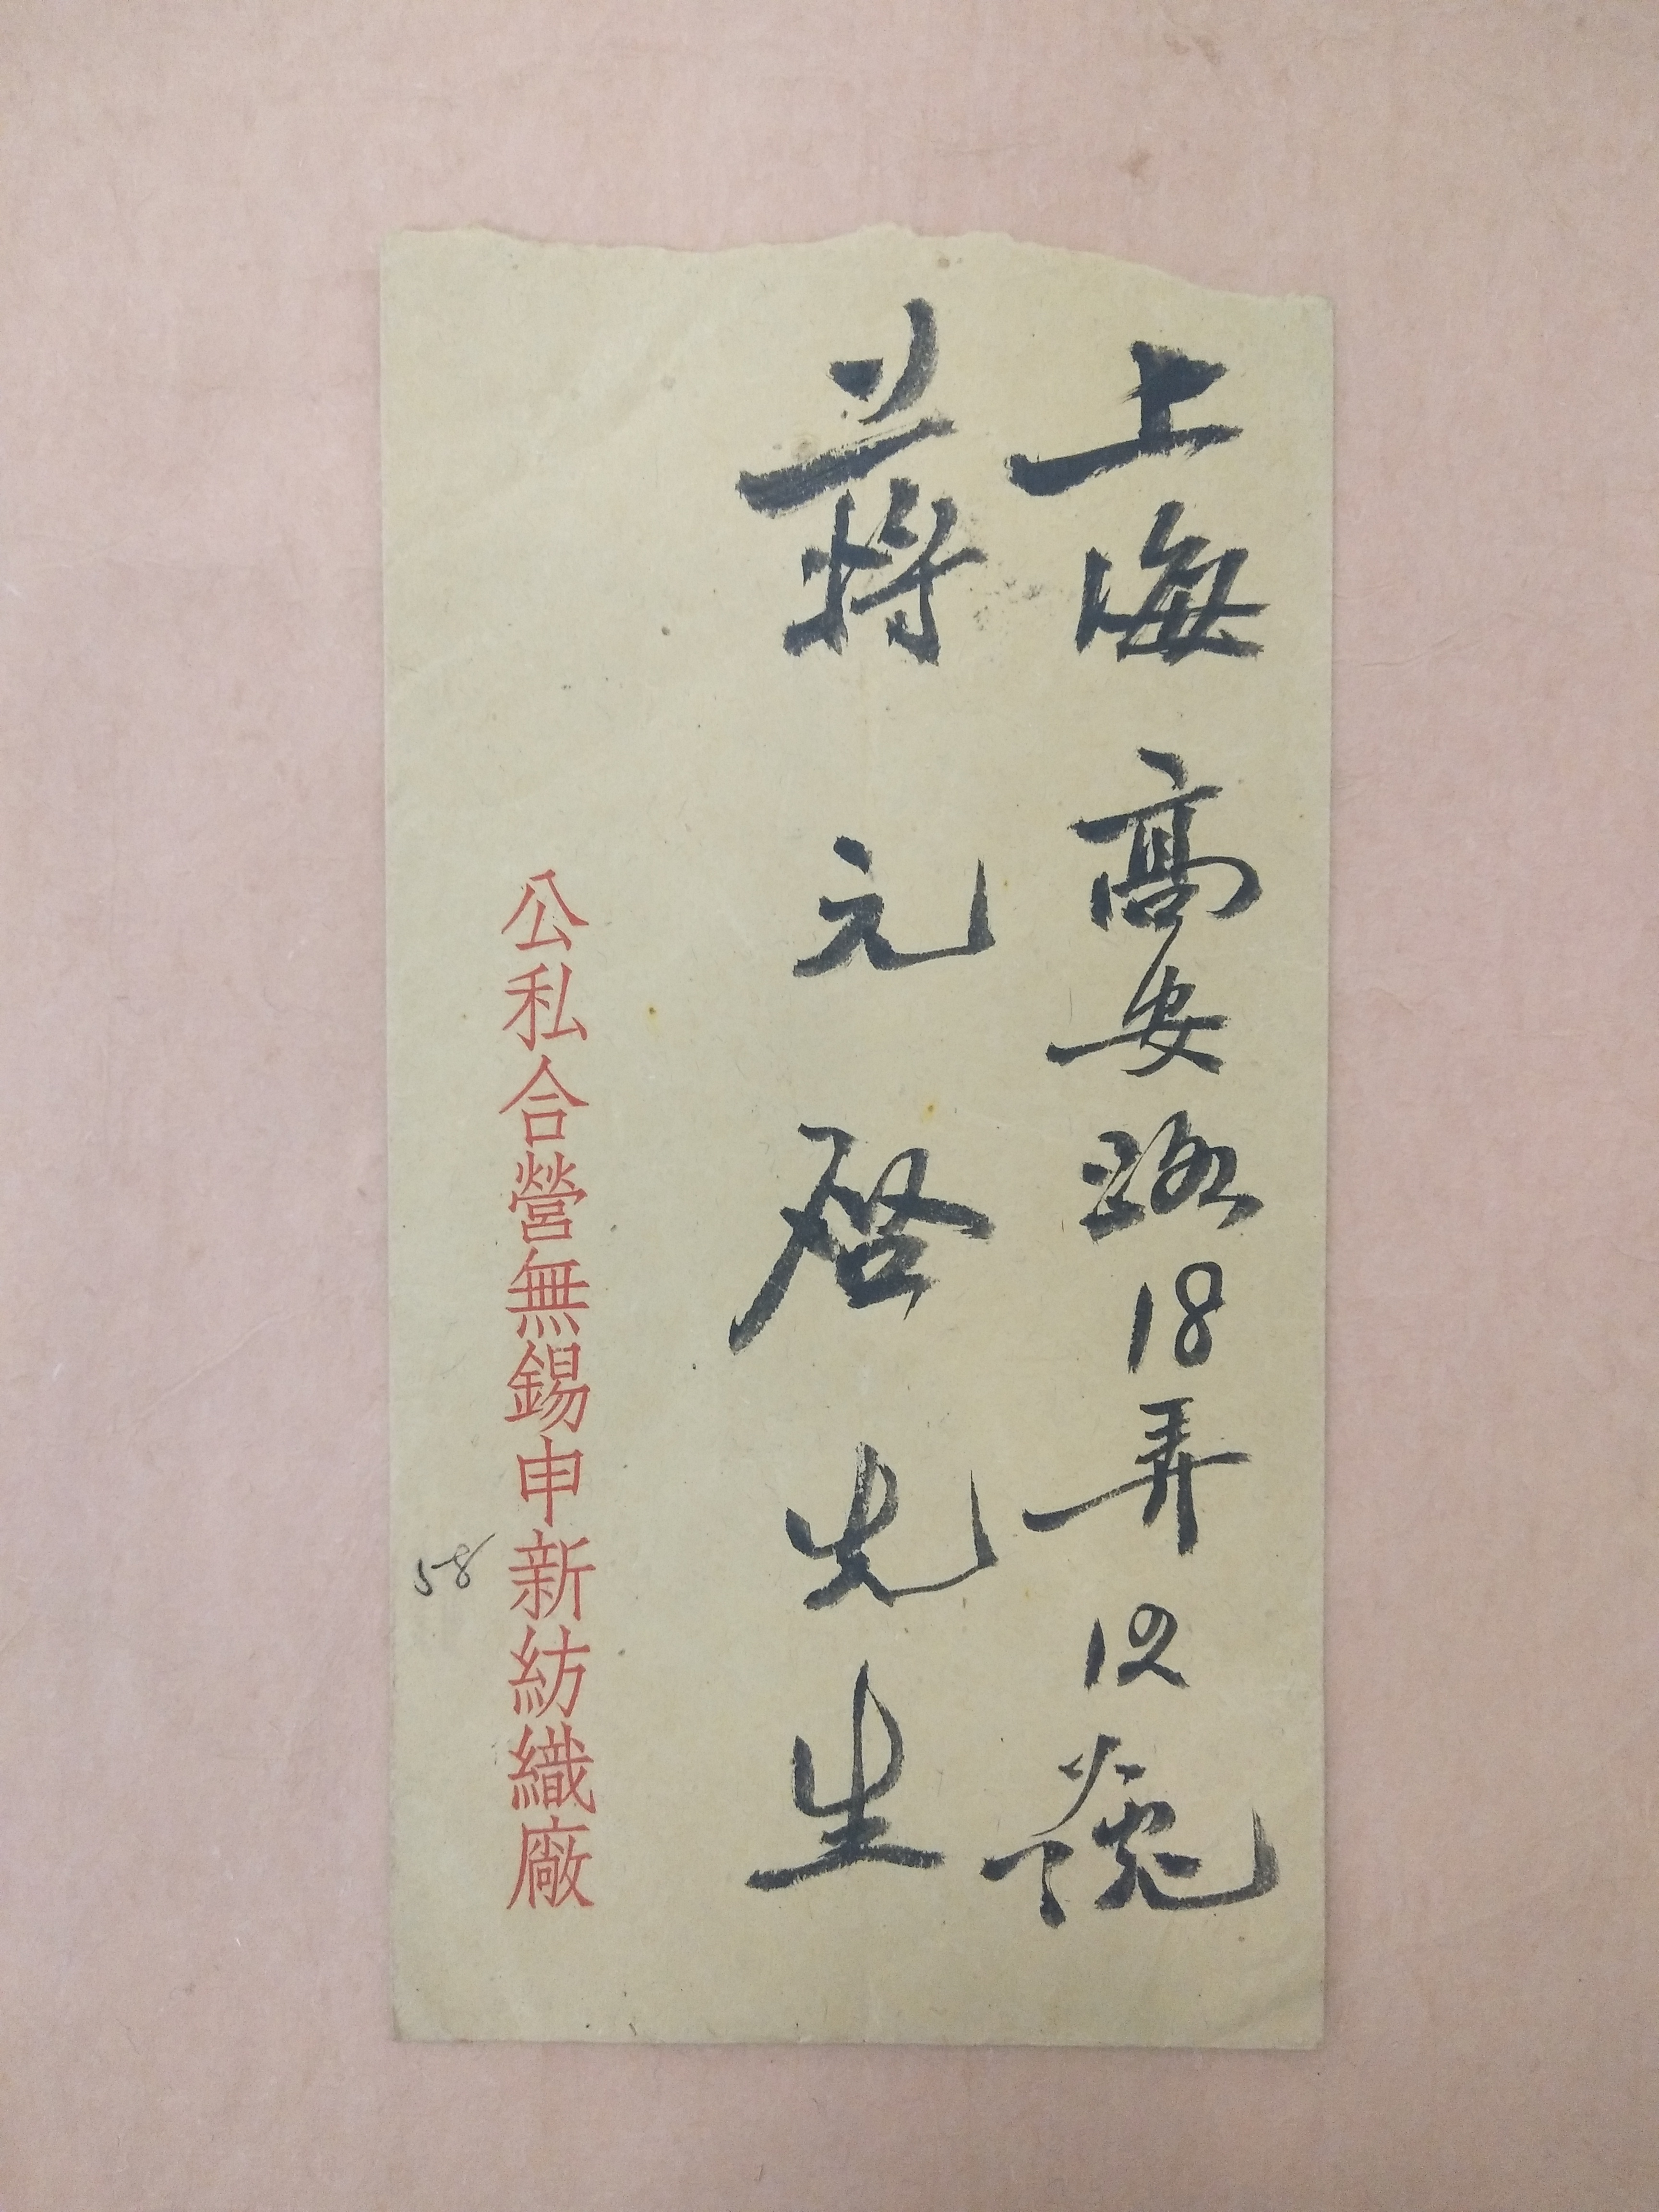 上海 高安路18弄12號
蔣元啓先生
公私合營無錫申新紡織廠
58